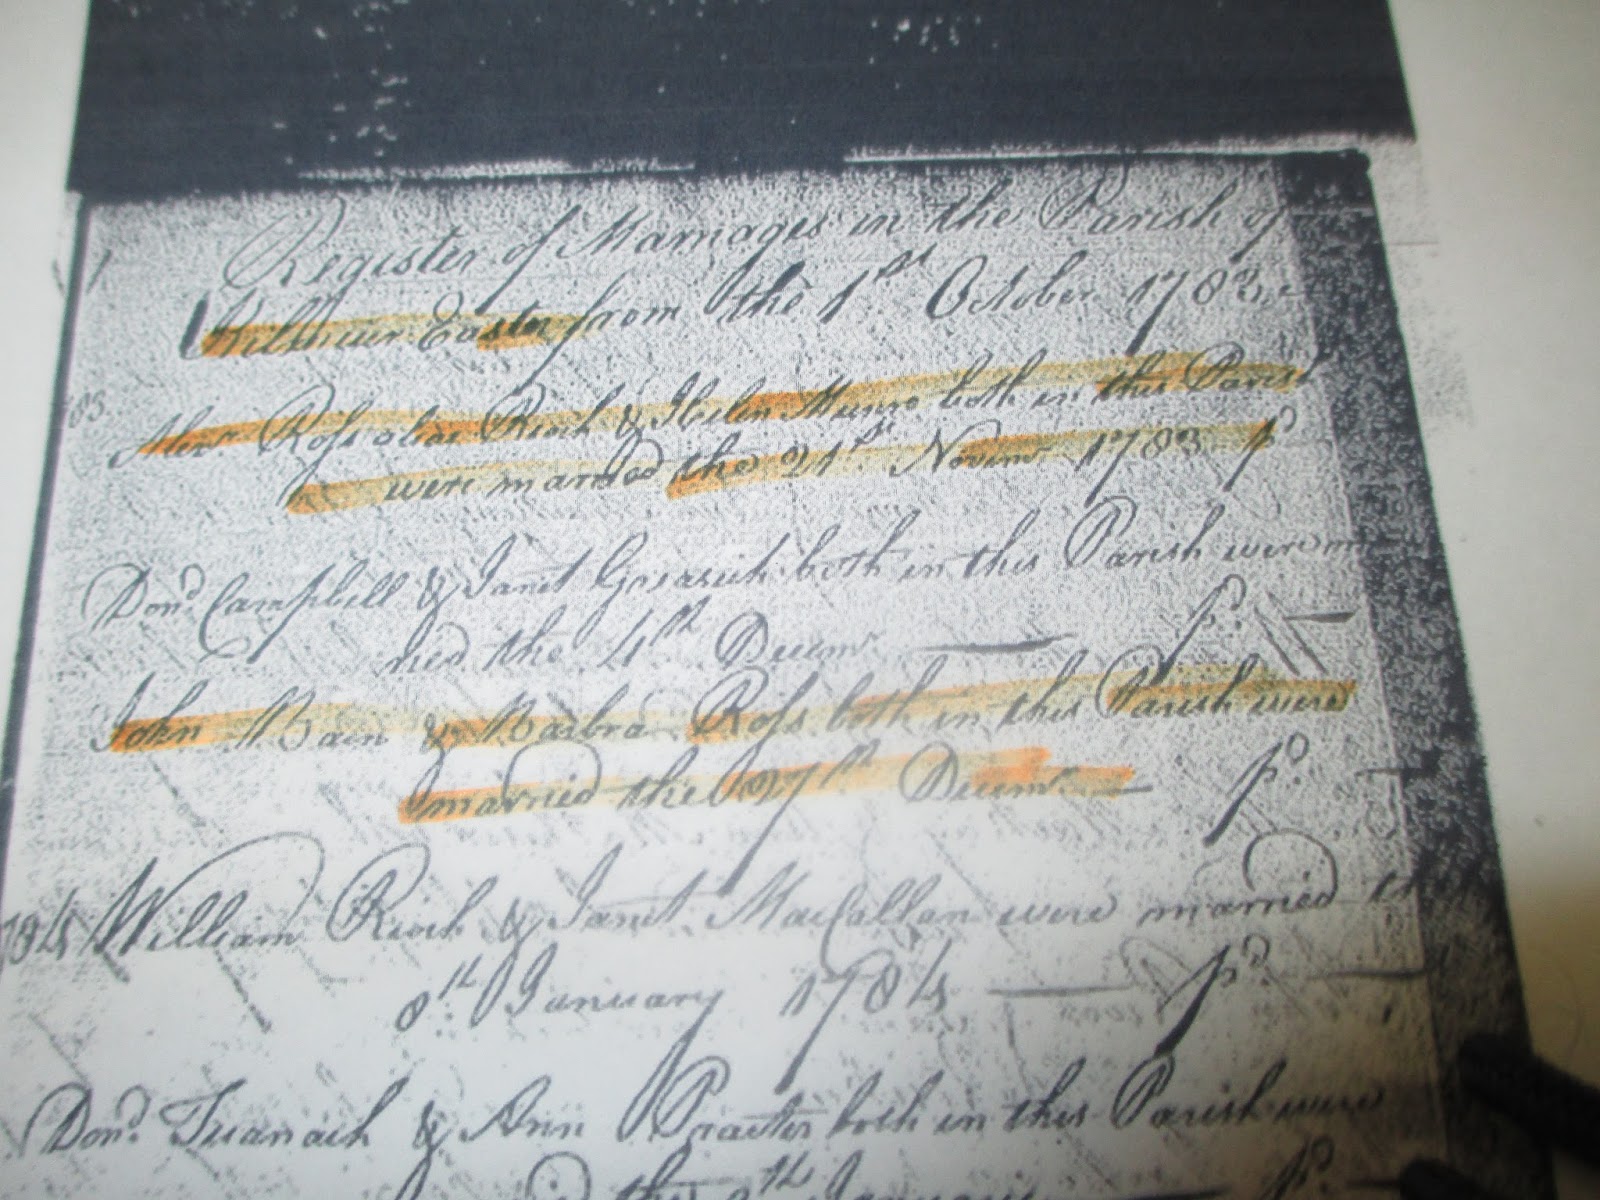 1
Register of Marriages in the Parish of
Kilmuir Easter from the 1st October 1783
83 Alexr Ross alias Rioch & Helen Munro both in this Parish
were married the 21st Novemr 1783 pd
Dond Campbell & Janet both in this Parish were mar
ried the 4th Decemr — pd
John Main & Barbra Ross both in this Parish were
married the 27th Decemr — pd
784 William Rioch & Janet MacCallan were married
8th January 1784 — pd
Dond & Ann both in this Parish were
the January pd